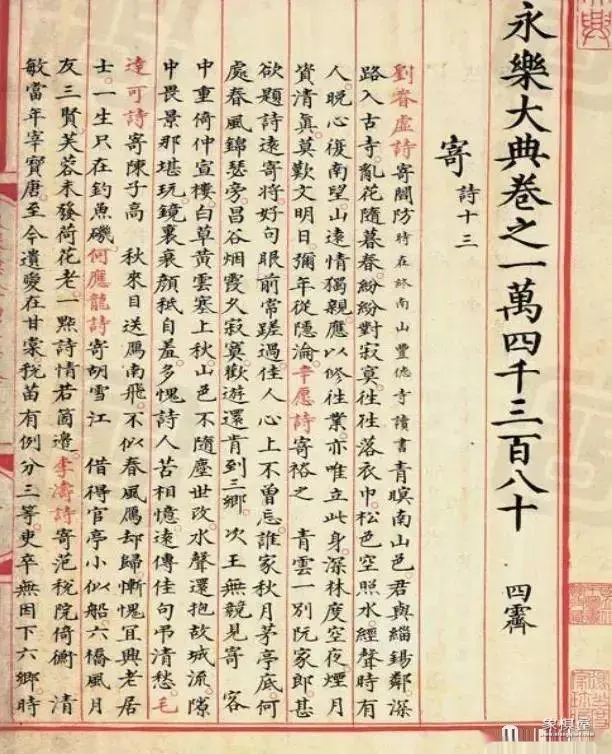 永樂大典卷之一萬四千三百八十 四霽
寄 詩十三
劉眘虛詩寄閻防時在終南山豐德寺讀書 青暝南山邑。君與緇錫鄰深
路入古寺。亂花隨暮春。紛紛對寂寞。往往落衣巾。松色空照水。經聲時有
人。晚心復南望。山遠情獨親。應以修往業。亦唯立此身。深林度空夜。煙月
資清真。莫歎文明日。彌年從隱淪。辛愿詩寄裕之 青雲一別阮家郎。甚
欲題詩遠寄將。好句眼前常蹉過。佳人心上不曾忘。誰家秋月茅亭底。何
處春風錦瑟旁。昌谷烟霞久寂寞。歡遊還肯到三鄉。 次王無競見寄 客
中重倚仲宣樓。白草黃雲塞上秋。山色不隨塵世改。水聲還抱故城流。隙
中畏景那堪玩。鏡裏衰顏秪自羞。多愧詩人苦相憶。遠傳佳句弔清愁。毛
達可詩寄陳子高 秋來目送鴈南飛。不似春風鴈却歸。慚愧宜興老居
士。一生只在釣魚磯。何應龍詩寄胡雪江 借得官亭小似船。六橋風月
友三賢。芙蓉未發荷花老。一點詩情若箇邊。李濤詩寄范稅院倚衡 清
敏當年宰寶唐。至今遺愛在甘棠。稅苗有例分三等。吏卒無因下六鄉。時